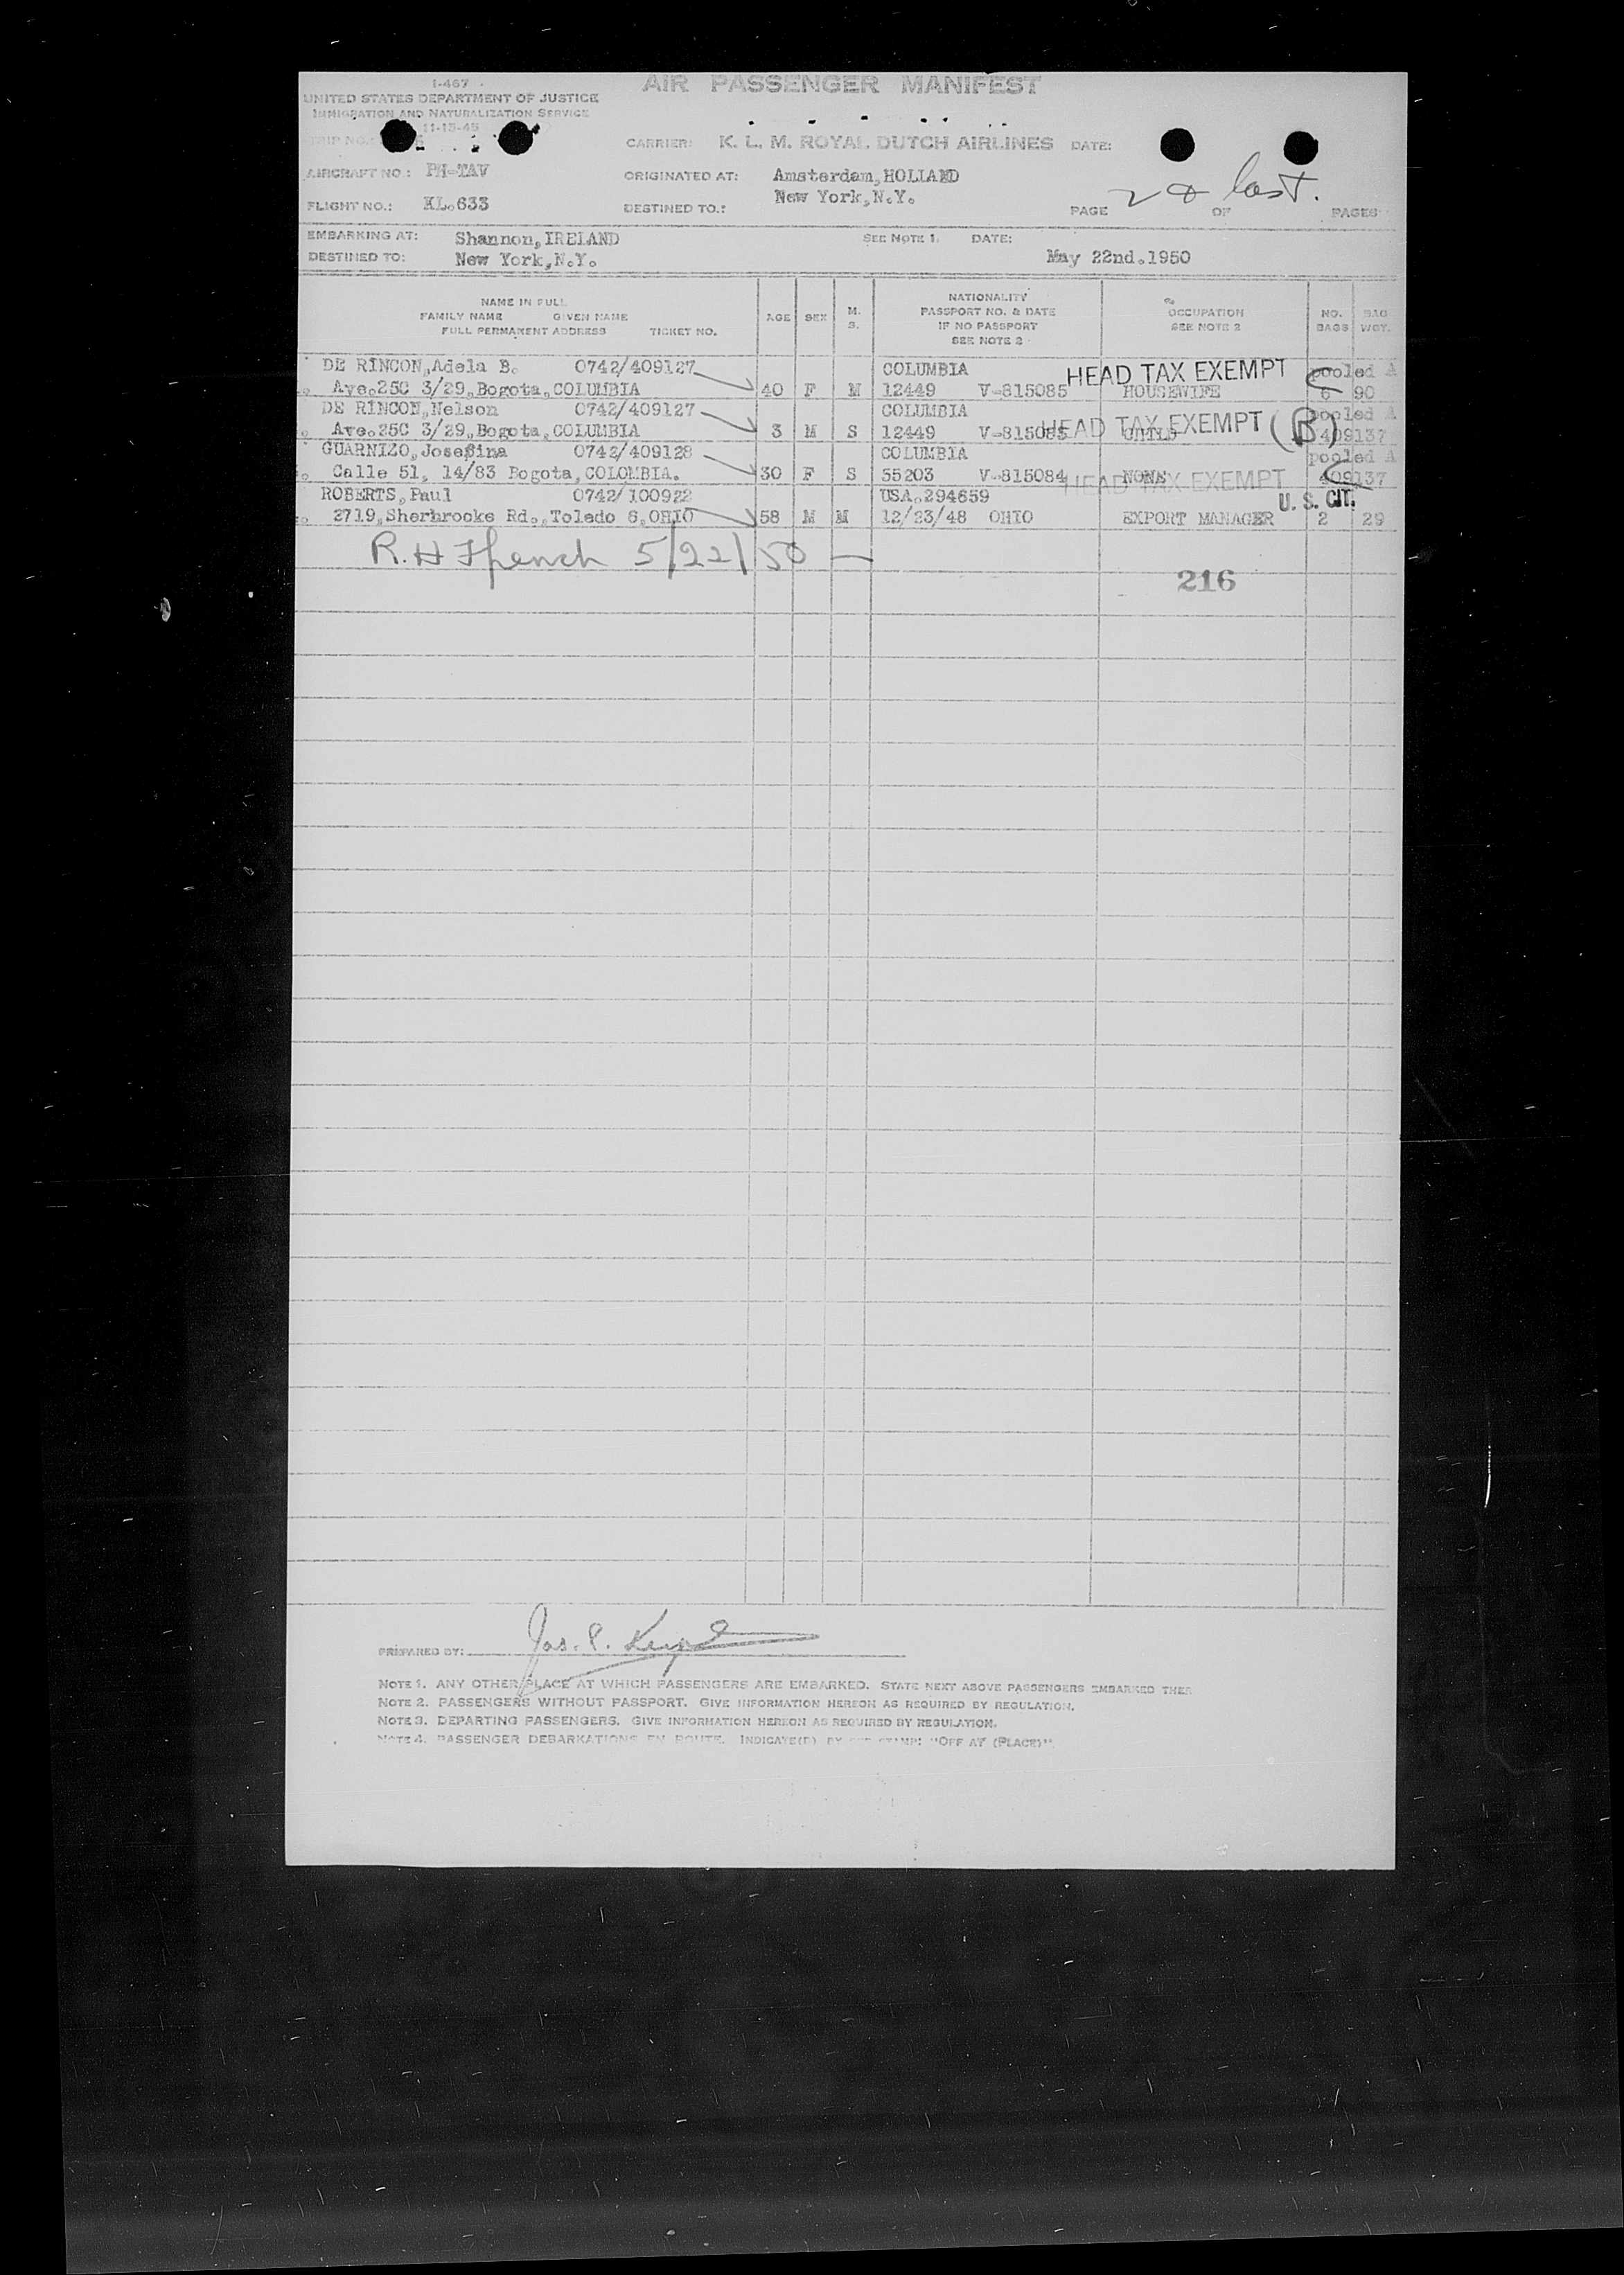 I-467
UNITED STATES DEPARTMENT OF JUSTICE
IMMIGRATION AND NATURALIZATION SERVICE
11-15-45
AIR PASSENGER MANIFEST
TRIP NO.:
CARRIER: K. L. M. ROYAL DUTCH AIRLINES DATE:
AIRCRAFT NO.: PH-TAV
ORIGINATED AT: Amsterdam, HOLLAND
FLIGHT NO.: KL.633
DESTINED TO.: New York,N.Y.
PAGE 2 & last. OF PAGES
EMBARKING AT: Shannon, IRELAND SEE NOTE 1. DATE:
DESTINED TO: New York,N.Y. May 22nd.1950
NAME IN FULL
FAMILY NAME GIVEN NAME
FULL PERMANENT ADDRESS TICKET NO.
AGE SEX M. S.
NATIONALITY
PASSPORT NO. & DATE
IF NO PASSPORT
SEE NOTE 2
OCCUPATION
SEE NOTE 2
NO. BAGS
BAG WGT.
DE RINCON,Adela B. 0742/409127 COLUMBIA HEAD TAX EXEMPT pooled A
Ave.25C 3/29,Bogota,COLUMBIA 40 F M 12449 V-815085 HOUSEWIFE 6 90
DE RINCON,Nelson 0742/409127 COLUMBIA HEAD TAX EXEMPT (B) pooled A
Ave.25C 3/29,Bogota,COLUMBIA 3 M S 12449 V-815085 CHILD 409137
GUARNIZO,Josefina 0742/409128 COLUMBIA pooled A
Calle 51, 14/83 Bogota,COLOMBIA. 30 F S 55203 V-815084 HEAD TAX EXEMPT NONE 409137
ROBERTS,Paul 0742/100922 USA.294659 U. S. CIT.
2719,Sherbrooke Rd.,Toledo 6,OHIO 58 M M 12/23/48 OHIO EXPORT MANAGER 2 29
R.H 5/22/50 —
216
PREPARED BY: Jas. P.
NOTE 1. ANY OTHER PLACE AT WHICH PASSENGERS ARE EMBARKED. STATE NEXT ABOVE PASSENGERS EMBARKED THER
NOTE 2. PASSENGERS WITHOUT PASSPORT. GIVE INFORMATION HEREON AS REQUIRED BY REGULATION.
NOTE 3. DEPARTING PASSENGERS. GIVE INFORMATION HEREON AS REQUIRED BY REGULATION.
NOTE 4. PASSENGER DEBARKATIONS EN ROUTE. INDICATE(D) BY STAMP: "OFF AT (PLACE)".